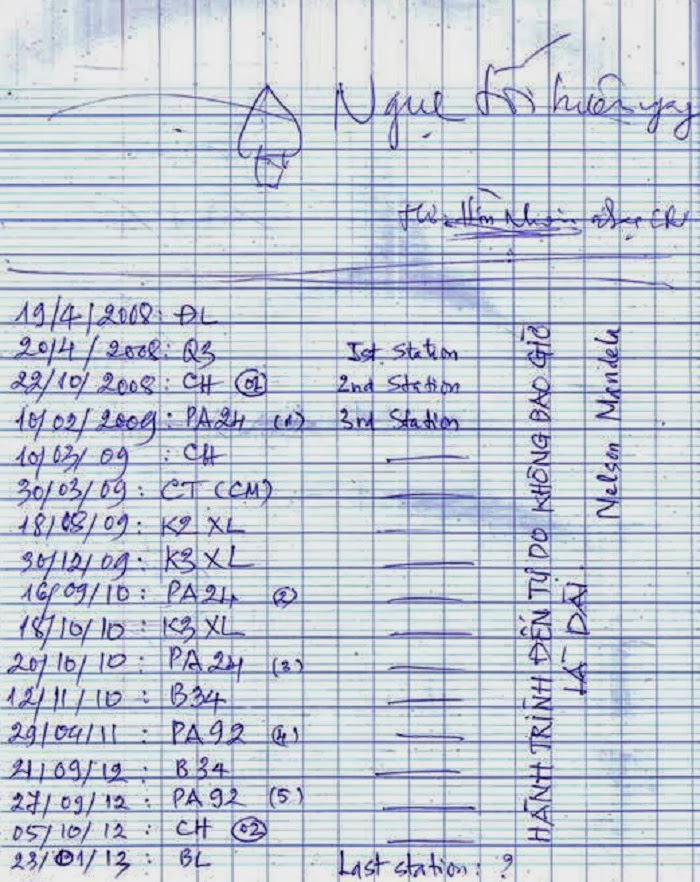 Ngục tối
19/4/2008: ĐL
20/4/2008: Q3 Ist Station
22/10/2008: CH (02) 2nd Station
10/02/2009: PA24 (1) 3rd Station
10/03/09 : CH
30/03/09 : CT (CM)
18/08/09 : K2 XL
30/12/09 : K3 XL
16/09/10 : PA24 (2)
18/10/10 : K3 XL
20/10/10 : PA24 (3)
12/11/10 : B34
29/04/11 : PA92 (4)
21/09/12 : B34
27/09/12 : PA92 (5)
05/10/12 : CH (02)
23/01/13 : BL Last station : ?
HÀNH TRÌNH ĐẾN TỰ DO KHÔNG BAO GIỜ
LÀ DÀI.
Nelson Mandela